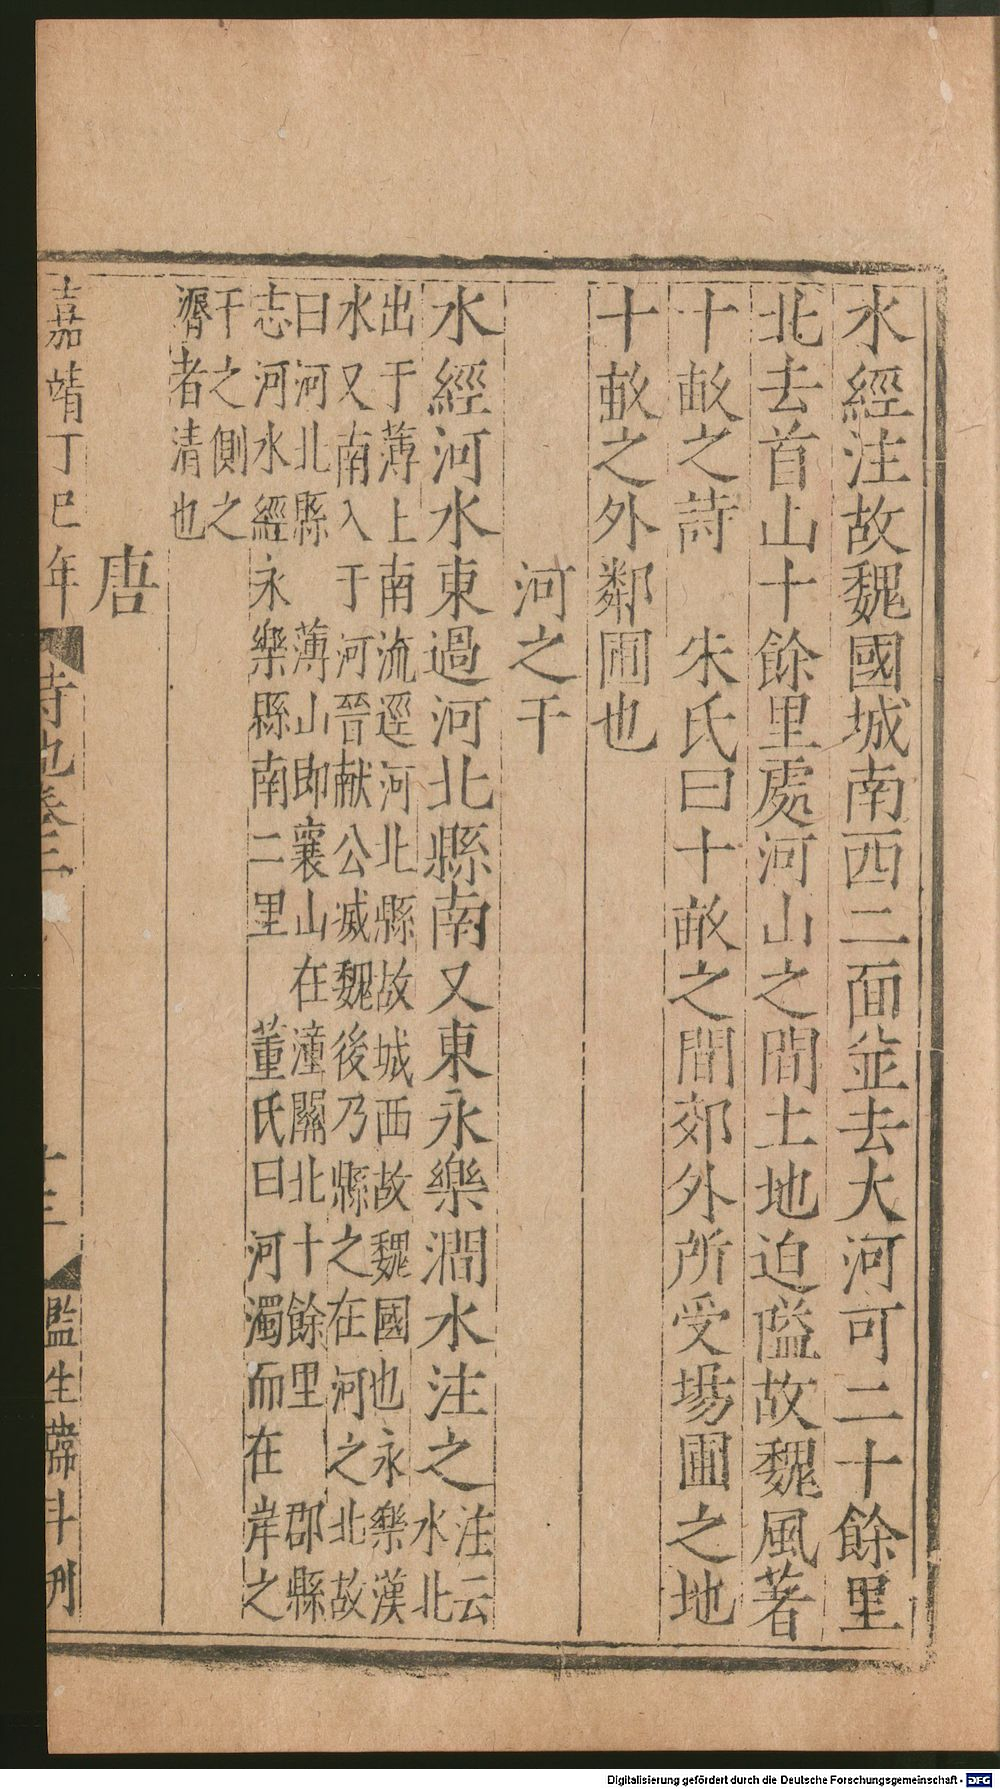 水經注故魏國城南西二面並去大河可二十餘里
北去首山十餘里處河山之間土地迫隘故魏風著
十畝之詩　朱氏曰十畝之間郊外所受場圃之地
十畝之外鄰圃也
河之干
水經河水東過河北縣南又東永樂澗水注之注云
水北
出于薄上南流逕河北縣故城西故魏國也永樂漢
水又南入于河晉献公滅魏後乃縣之在河之北故
曰河北縣　薄山即襄山在潼關北十餘里　郡縣
志河水經永樂縣南二里　董氏曰河濁而在岸之
干之側之
漘者清也
唐
嘉靖丁巳年
詩地卷三
十三
監生蔀斗刋
Digitalisierung gefördert durch die Deutsche Forschungsgemeinschaft - DFG